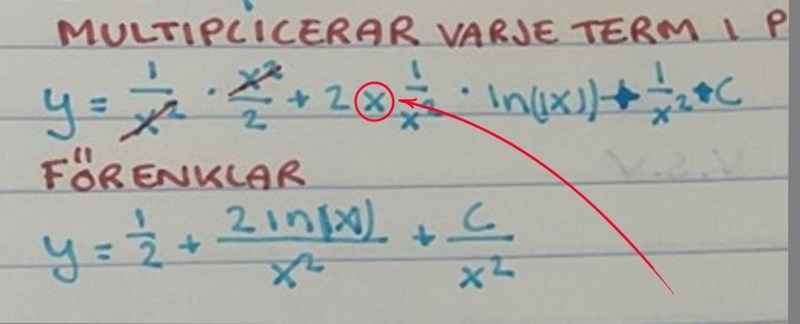 MULTIPLICERAR VARJE TERM I P
y = 1/x² · x²/2 + 2 x 1/x² · ln(|x|) + 1/x² · C
FÖRENKLAR
y = 1/2 + 2 ln|x|/x² + C/x²